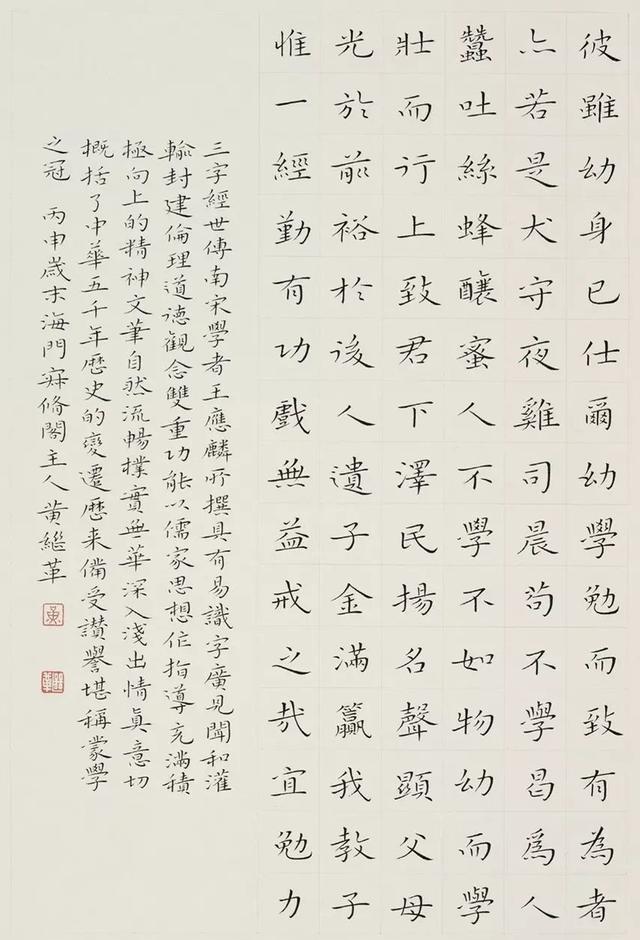 彼雖幼身已仕爾幼學勉而致有為者
亦若是犬守夜雞司晨茍不學曷為人
蠶吐絲蜂釀蜜人不學不如物幼而學
壯而行上致君下澤民揚名聲顯父母
光於前裕於後人遺子金滿籯我教子
惟一經勤有功戲無益戒之哉宜勉力
三字經世傳南宋學者王應麟所撰具有易識字廣見聞和灌
輸封建倫理道德觀念雙重功能以儒家思想作指導充滿積
極向上的精神文筆自然流暢樸實無華深入淺出情真意切
概括了中華五千年歷史的變遷歷来備受讃譽堪稱蒙學
之冠 丙申歲末海門寐脩閣主人黄繼革